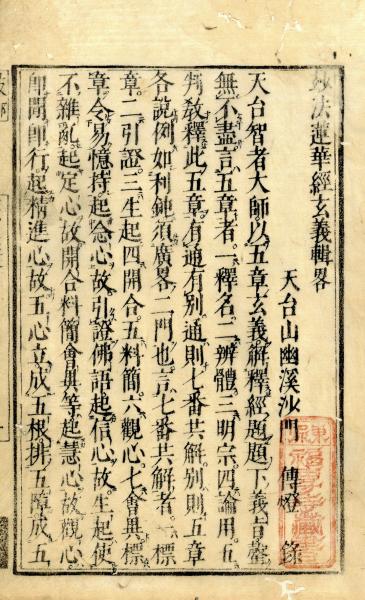 妙法蓮華經玄義輯畧
天台山幽溪沙門　傳燈　錄
天台智者大師以五章玄義解釋經題題下義旨罄
無不盡言五章者一釋名二辨體三明宗四論用五
判教釋此五章有通有別通則七番共解別則五章
各說例如利鈍須廣畧二門也言七番共解者一標
章二引證三生起四開合五料簡六觀心七會異標
章令易憶持起念心故引證佛語起信心故生起使
不雜亂起定心故開合料簡會異等起慧心故觀心
即聞即行起精進心故五心立成五根排五障成五